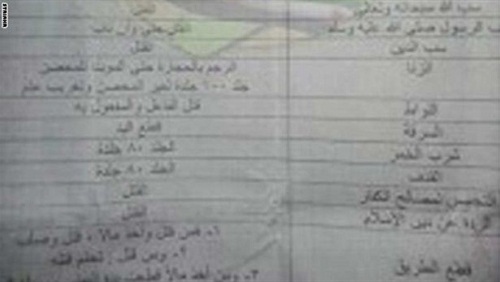 سب الله سبحانه وتعالى القتل
سب الرسول صلى الله عليه وسلم القتل حتى وإن تاب
سب الدين القتل
الزنا الرجم بالحجارة حتى الموت للمحصن
جلد ١٠٠ جلدة لغير المحصن وتغريب عام
اللواط قتل الفاعل والمفعول به
السرقة قطع اليد
شرب الخمر الجلد ٨٠ جلدة
القذف الجلد ٨٠ جلدة
التجسس لصالح الكفار القتل
الردة عن دين الإسلام القتل
١- من قتل وأخذ مالاً ، قتل وصلب
قطع الطريق ٢- ومن قتل ، قتله
٣- ومن أخذ مالاً